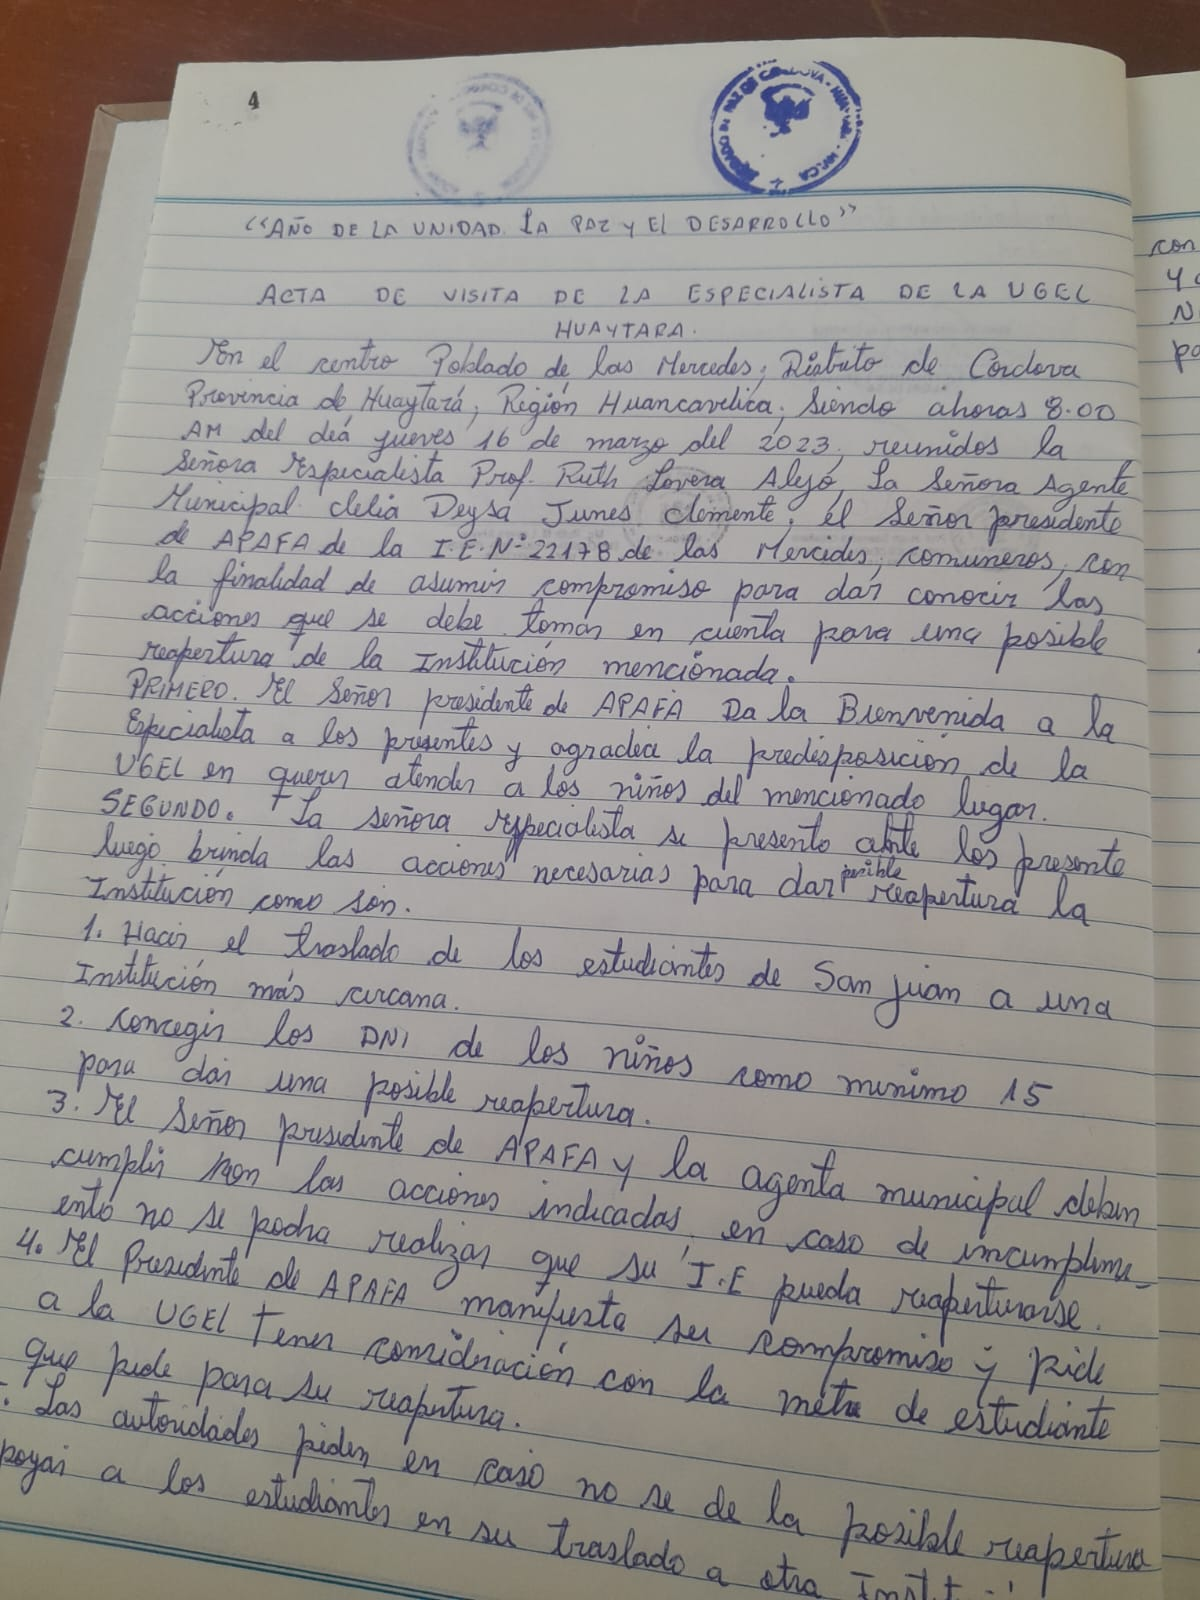 4
"AÑO DE LA UNIDAD LA PAZ Y EL DESARROLLO"
ACTA DE VISITA DE LA ESPECIALISTA DE LA UGEL
HUAYTARA.
En el centro Poblado de las Mercedes, Distrito de Cordova
Provincia de Huaytará, Región Huancavelica, siendo ahoras 8.00
AM del deá jueves 16 de marzo del 2023, reunidos la
Señora Especialista Prof. Ruth Lovera Alejo, La Señora Agente
Municipal Clelia Deysa Junes Clemente, el Señor presidente
de APAFA de la I.E.Nº22178 de las Mercedes, comuneros, con
la finalidad de asumir compromiso para dar conocer las
acciones que se debe tomar en cuenta para una posible
reapertura de la Institución mencionada.
PRIMERO. El Señor presidente de APAFA Da la Bienvenida a la
Especialista a los presentes y agradece la predisposición de la
UGEL en querer atender a los niños del mencionado lugar.
SEGUNDO. La señora especialista se presento ante los presente
luego brinda las acciones necesarias para dar posible reapertura la
Institución como son.
1. Hacer el traslado de los estudiantes de San Juan a una
Institución más cercana.
2. Concegir los DNI de los niños como minimo 15
para dar una posible reapertura.
3. El Señor presidente de APAFA y la agenta municipal deben
cumplir con las acciones indicadas, en caso de incumplimi-
ento no se podra realizar que su I.E pueda reaperturarse.
4. El Presidente de APAFA manifiesta su compromiso y pide
a la UGEL Tener consideración con la meta de estudiante
que pide para su reapertura.
Las autoridades piden en caso no se de la posible reapertura
poyar a los estudiantes en su traslado a otra
con
Y
N
po